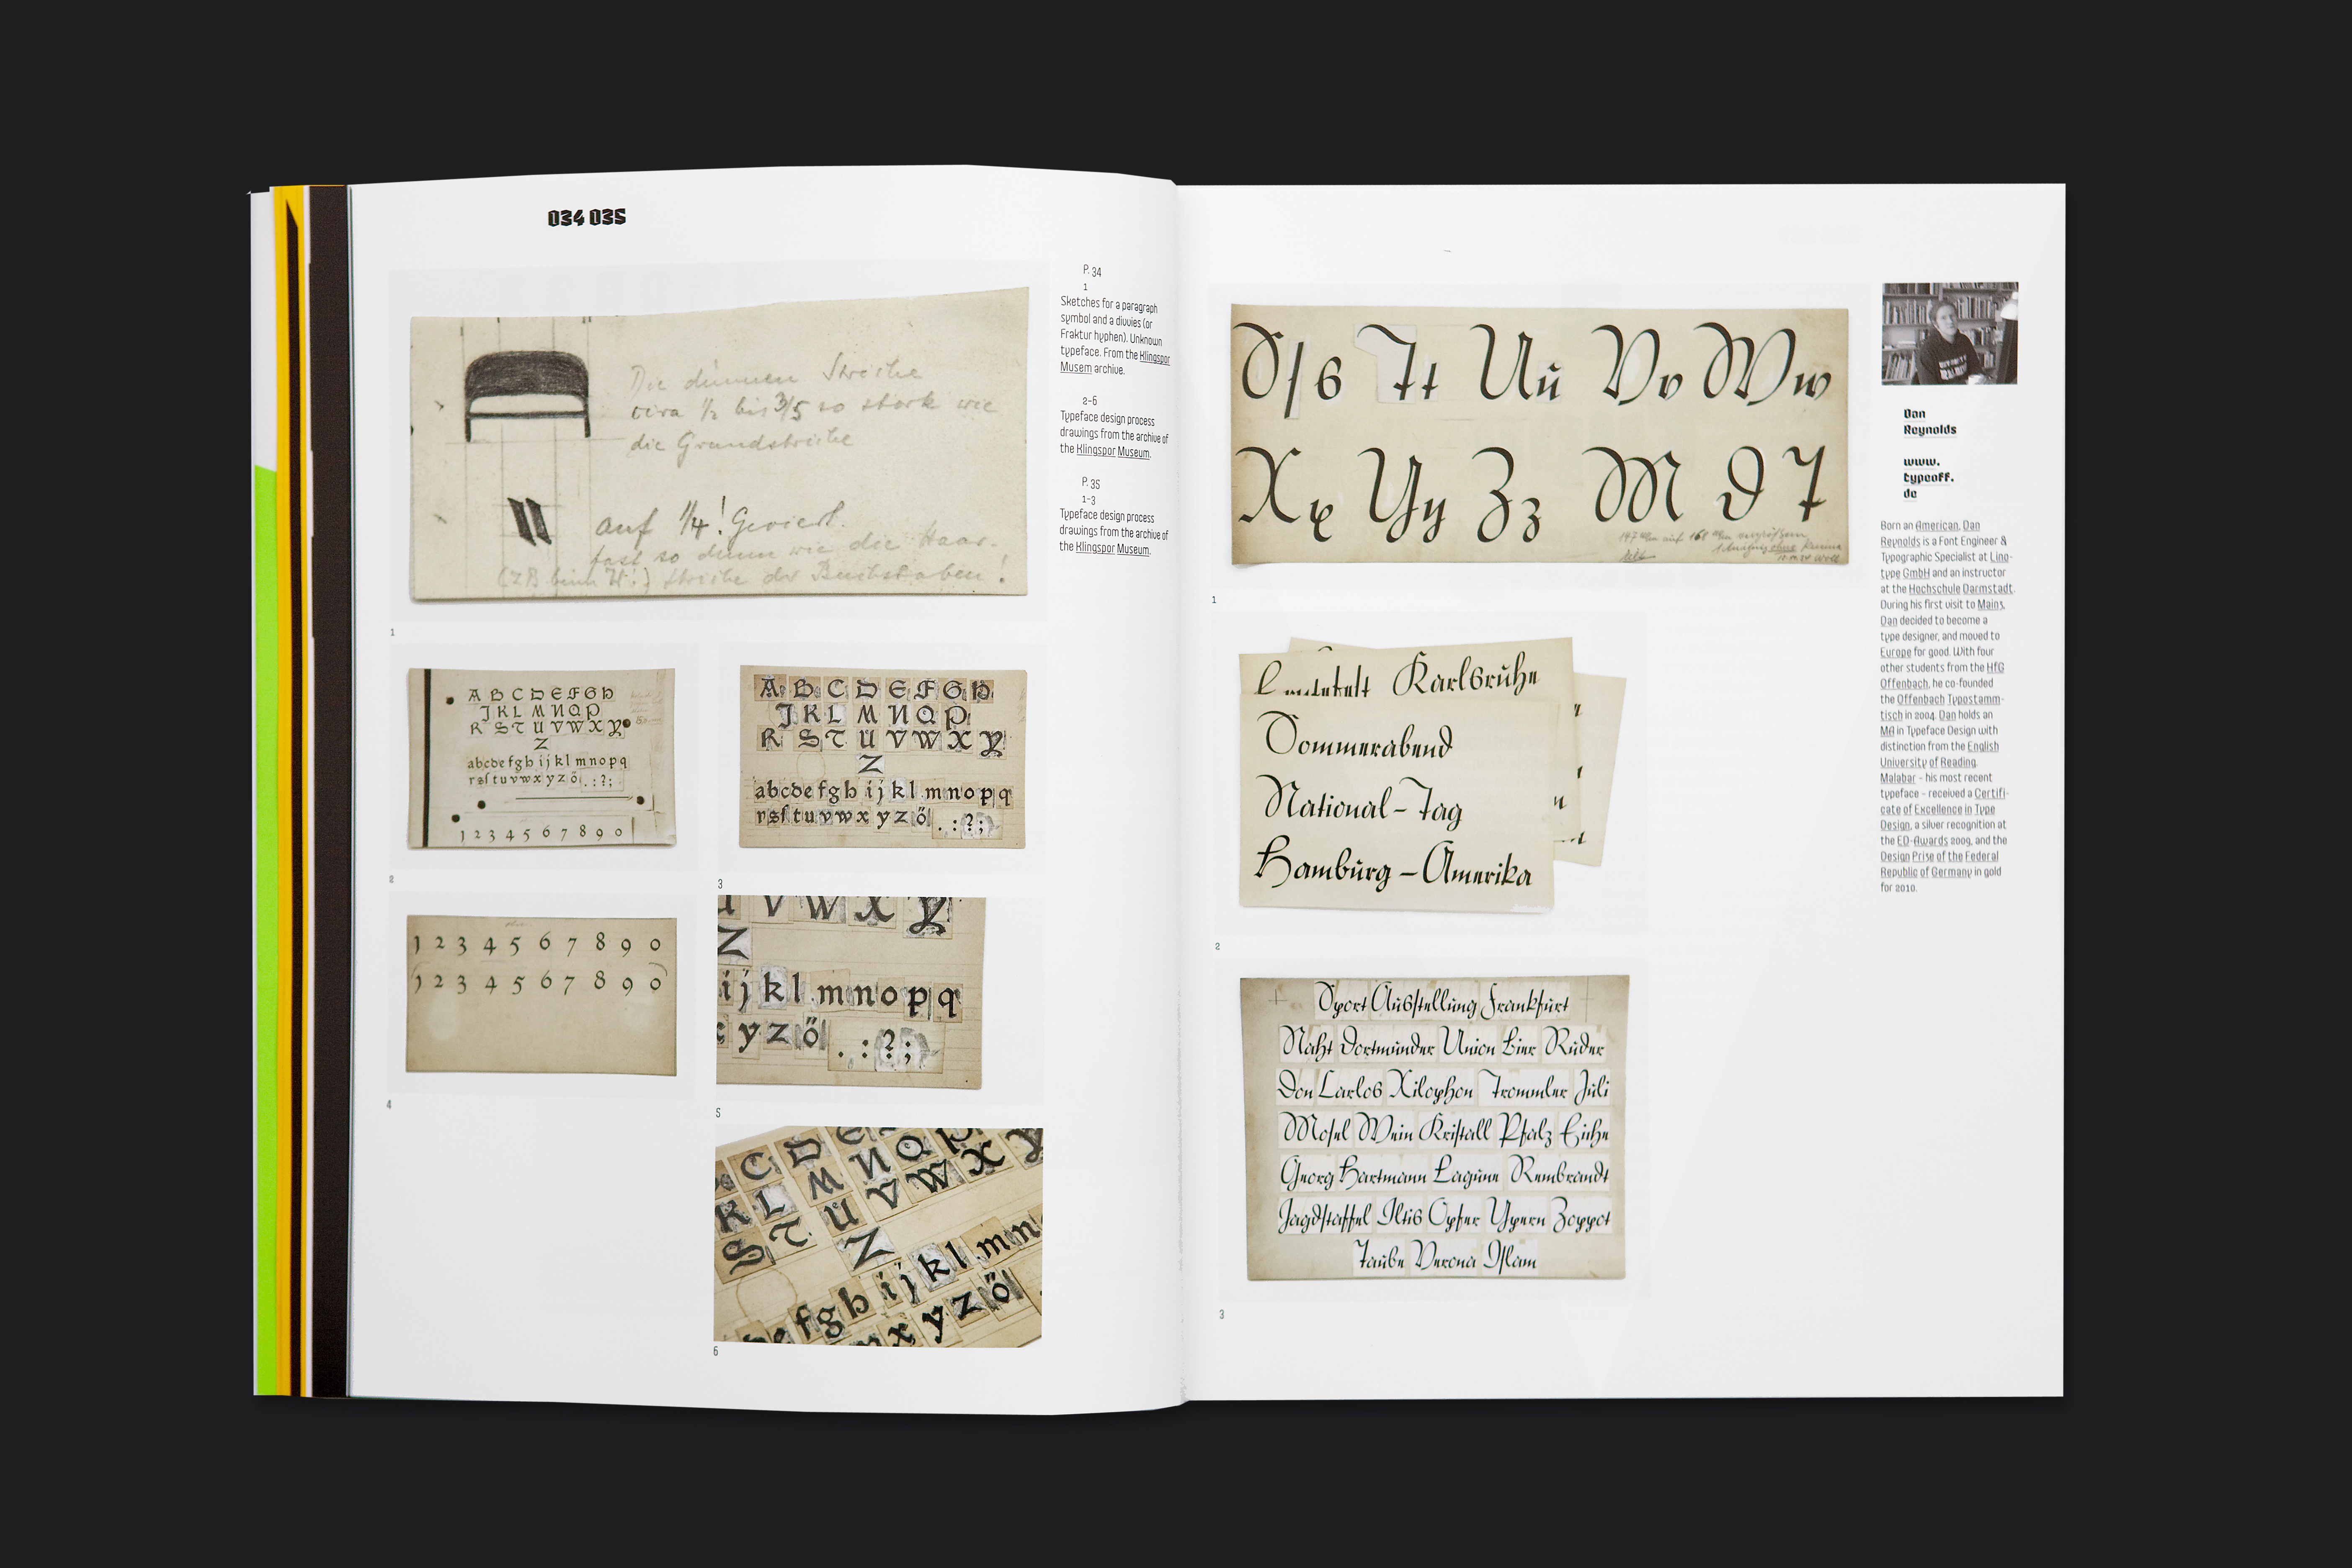 034 035
Die dünnen Striche
circa 1/2 bis 3/5 so stark wie
die Grundstriche
auf 1/4! Geviert.
fast so dünn wie die Haar-
(z.B. beim W!) striche der Buchstaben!
1
P. 34
1
Sketches for a paragraph
symbol and a divvies (or
Fraktur hyphen). Unknown
typeface. From the Klingspor
Musem archive.
2–6
Typeface design process
drawings from the archive of
the Klingspor Museum.
P. 35
1–3
Typeface design process
drawings from the archive of
the Klingspor Museum.
A B C D E F G H
J K L M N O P
R S T U V W X Y
Z
a b c d e f g h i j k l m n o p q
r s ſ t u v w x y z ö . : ? ;
1 2 3 4 5 6 7 8 9 0
2
A B C D E F G H
J K L M N O P
R S T U V W X Y
Z
a b c d e f g h i j k l m n o p q
r s ſ t u v w x y z ö . : ? ;
3
1 2 3 4 5 6 7 8 9 0
1 2 3 4 5 6 7 8 9 0
4
U V W X Y
Z
i j k l m n o p q
x y z ö . : ? ;
5
C D E
K L M N O P
S T U V W X Y
Z
e f g h i j k l m n
x y z ö
6
S ſ s T t U u V v W w
X x Y y Z z M I T
1
Karlsruhe
Sommerabend
National-Tag
Hamburg-Amerika
2
Sport Ausstellung Frankfurt
Nacht Dortmunder Union Bier Ruder
Don Carlos Xilophon Trommler Juli
Mosel Wein Kristall Pfalz Eiche
Georg Hartmann Lagune Rembrandt
Jagdstaffel Iltis Opfer Ypern Zoppot
Taube Verona Islam
3
Dan
Reynolds
www.
typeoff.
de
Born an American, Dan
Reynolds is a Font Engineer &
Typographic Specialist at Lino-
type GmbH and an instructor
at the Hochschule Darmstadt.
During his first visit to Mainz,
Dan decided to become a
type designer, and moved to
Europe for good. With four
other students from the HfG
Offenbach, he co-founded
the Offenbach Typostamm-
tisch in 2004. Dan holds an
MA in Typeface Design with
distinction from the English
University of Reading.
Malabar – his most recent
typeface – received a Certifi-
cate of Excellence in Type
Design, a silver recognition at
the ED-Awards 2009, and the
Design Prise of the Federal
Republic of Germany in gold
for 2010.